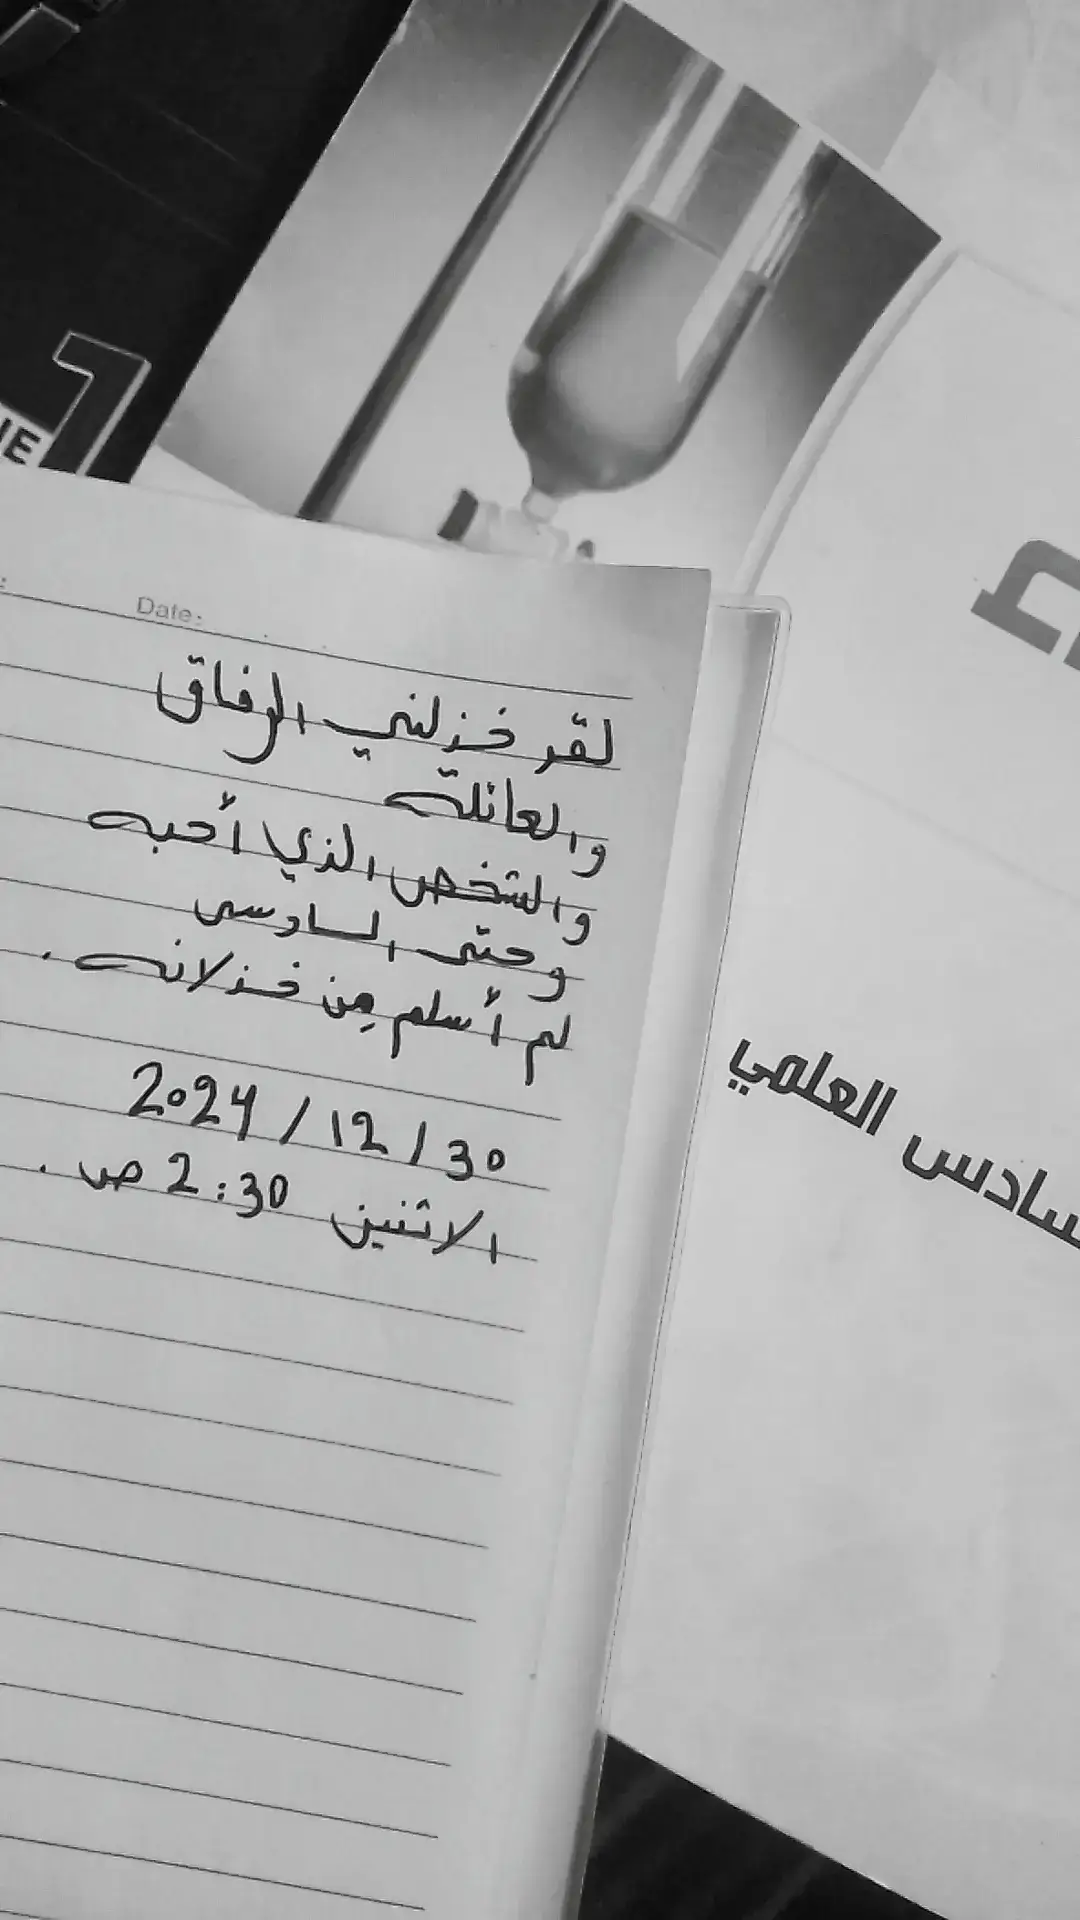 Date:
لقد خذلني الرفاق
والعائلة
والشخص الذي أحبه
وحتى السادس
لم أسلم من خذلانه.
2024 / 12 / 30
الاثنين 2:30 ص.
العلمي